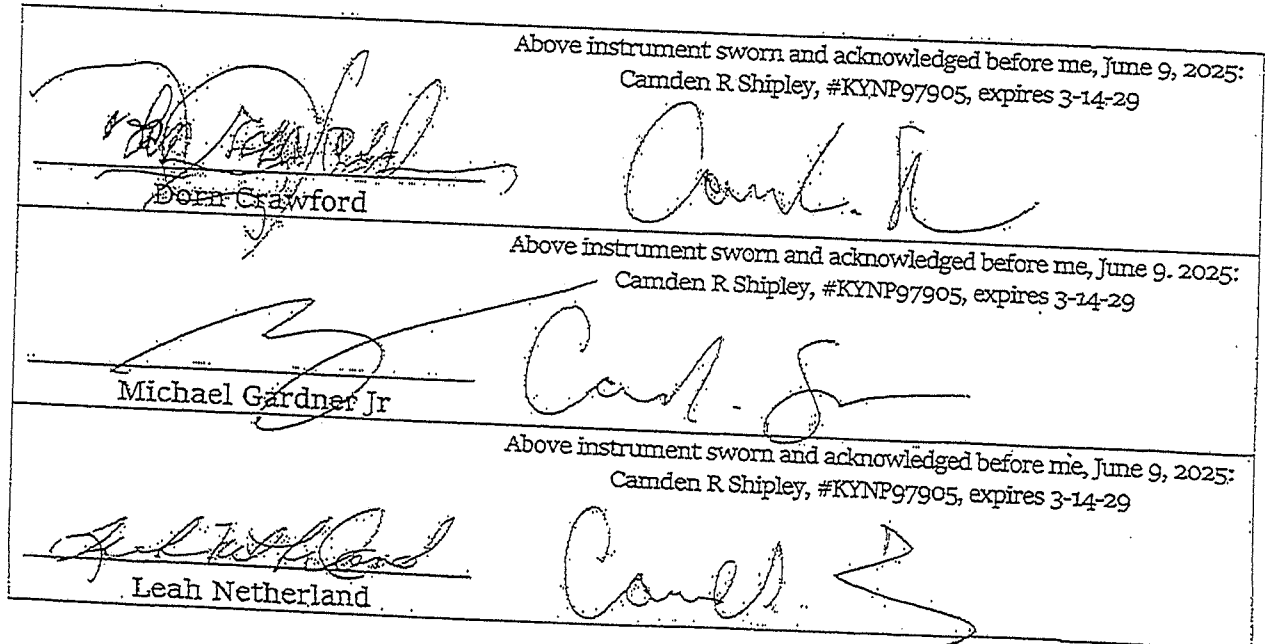 Above instrument sworn and acknowledged before me, June 9, 2025:
Camden R Shipley, #KYNP97905, expires 3-14-29
Dorn Crawford
Above instrument sworn and acknowledged before me, June 9. 2025:
Camden R Shipley, #KYNP97905, expires 3-14-29
Michael Gardner Jr
Above instrument sworn and acknowledged before me, June 9, 2025:
Camden R Shipley, #KYNP97905, expires 3-14-29
Leah Netherland